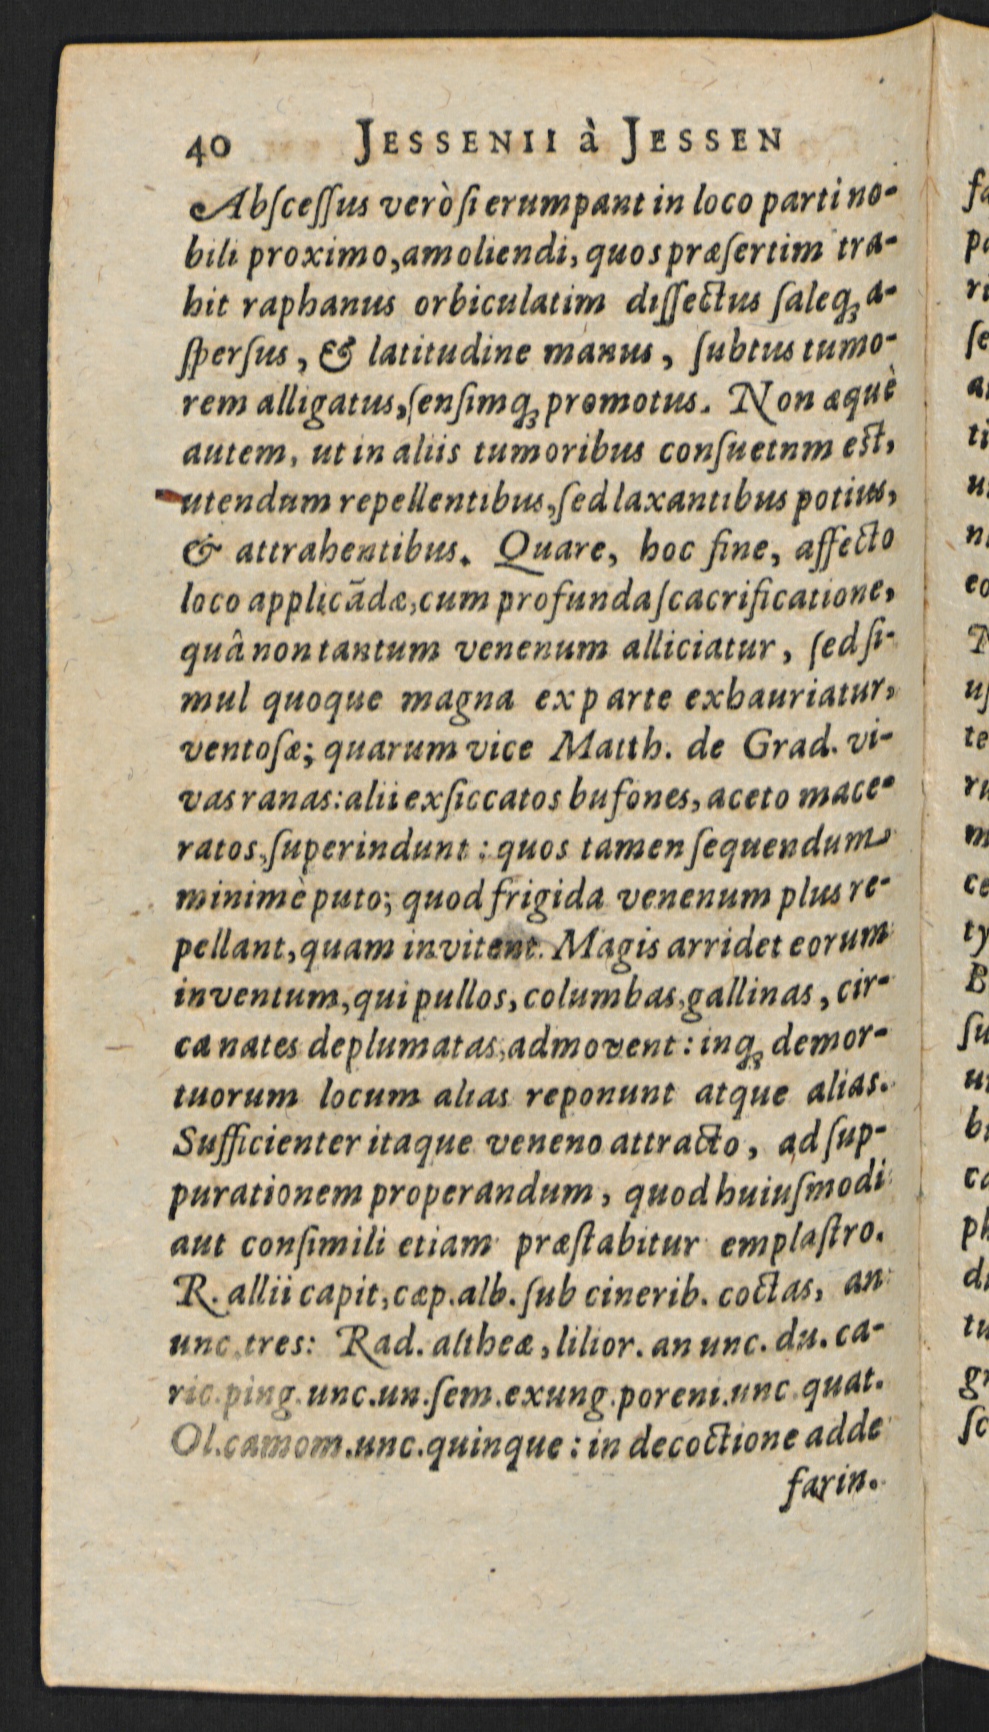 40 JESSENII à JESSEN
Abſceſſus verò ſi erumpant in loco parti no-
bili proximo, amoliendi, quos præſertim tra-
hit raphanus orbiculatim diſſectus ſaleq́ꝫ a-
ſperſus, & latitudine manus, ſubtus tumo-
rem alligatus, ſenſimq́ꝫ promotus. Non æquè
autem, ut in aliis tumoribus conſuetnm eſt,
utendum repellentibus, ſed laxantibus potius,
& attrahentibus. Quare, hoc fine, affecto
loco applicãdæ, cum profunda ſcacrificatione,
quâ non tantum venenum alliciatur, ſed ſi-
mul quoque magna ex parte exhauriatur,
ventoſæ; quarum vice Matth. de Grad. vi-
vas ranas: alii exſiccatos bufones, aceto mace-
ratos, ſuperindunt: quos tamen ſequendum
minimè puto; quod frigida venenum plus re-
pellant, quam invitent. Magis arridet eorum
inventum, qui pullos, columbas, gallinas, cir-
ca nates deplumatas, admovent: inq́ꝫ demor-
tuorum locum alias reponunt atque alias.
Sufficienter itaque veneno attracto, ad ſup-
purationem properandum, quod huiuſmodi
aut conſimili etiam præſtabitur emplaſtro.
R. allii capit, cæp. alb. ſub cinerib. coctas, an
unc. tres: Rad. altheæ, lilior. an unc. du. ca-
ric. ping. unc. un. ſem. exung. poreni. unc quat.
Ol. camom. unc. quinque: in decoctione adde
farin.